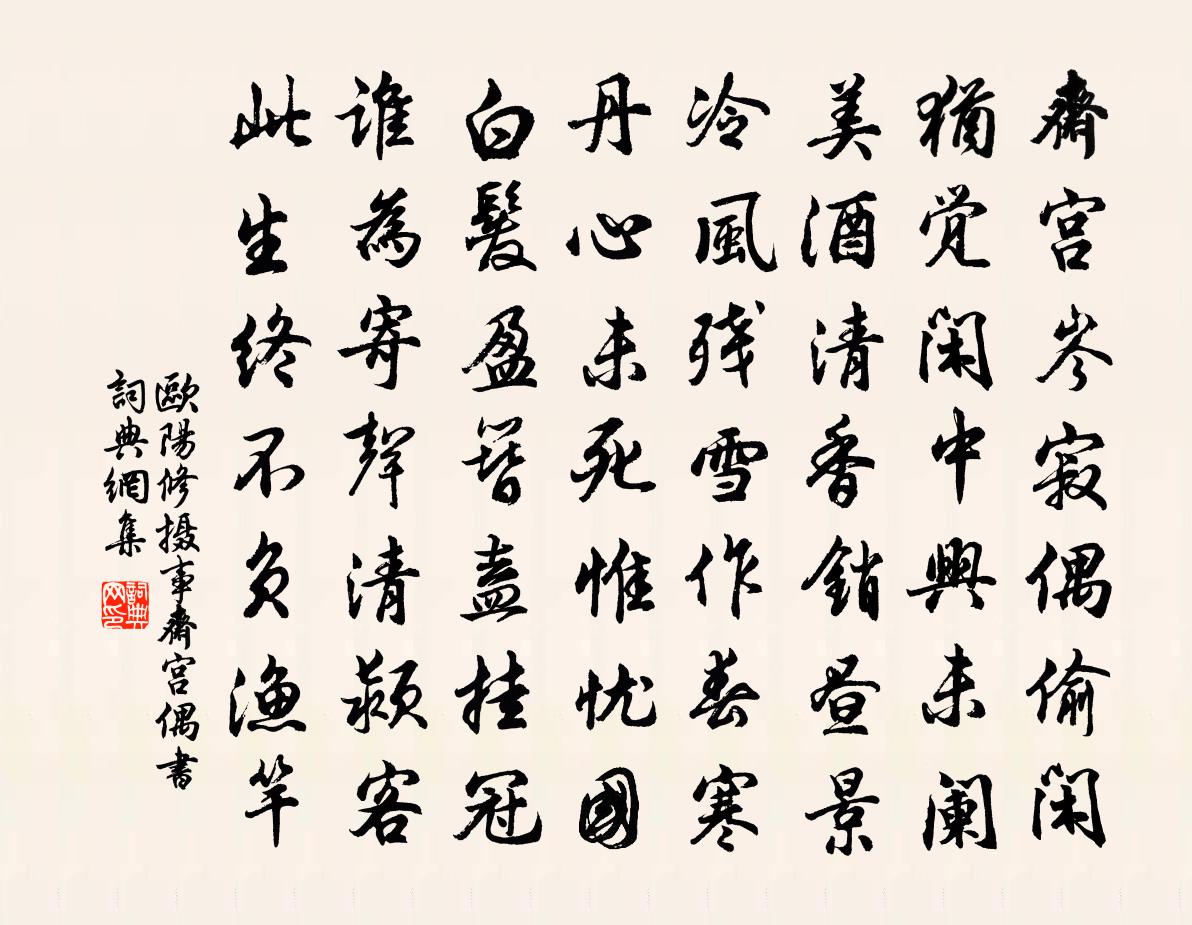 齋宮岑寂偶偷閑
猶覺閑中興未闌
美酒清香銷晝景
冷風殘雪作春寒
丹心未死惟憂國
白髮盈簪盍挂冠
誰為寄聲清潁客
此生終不負漁竿
歐陽修攝事齋宮偶書
詞典網集
詞典网印